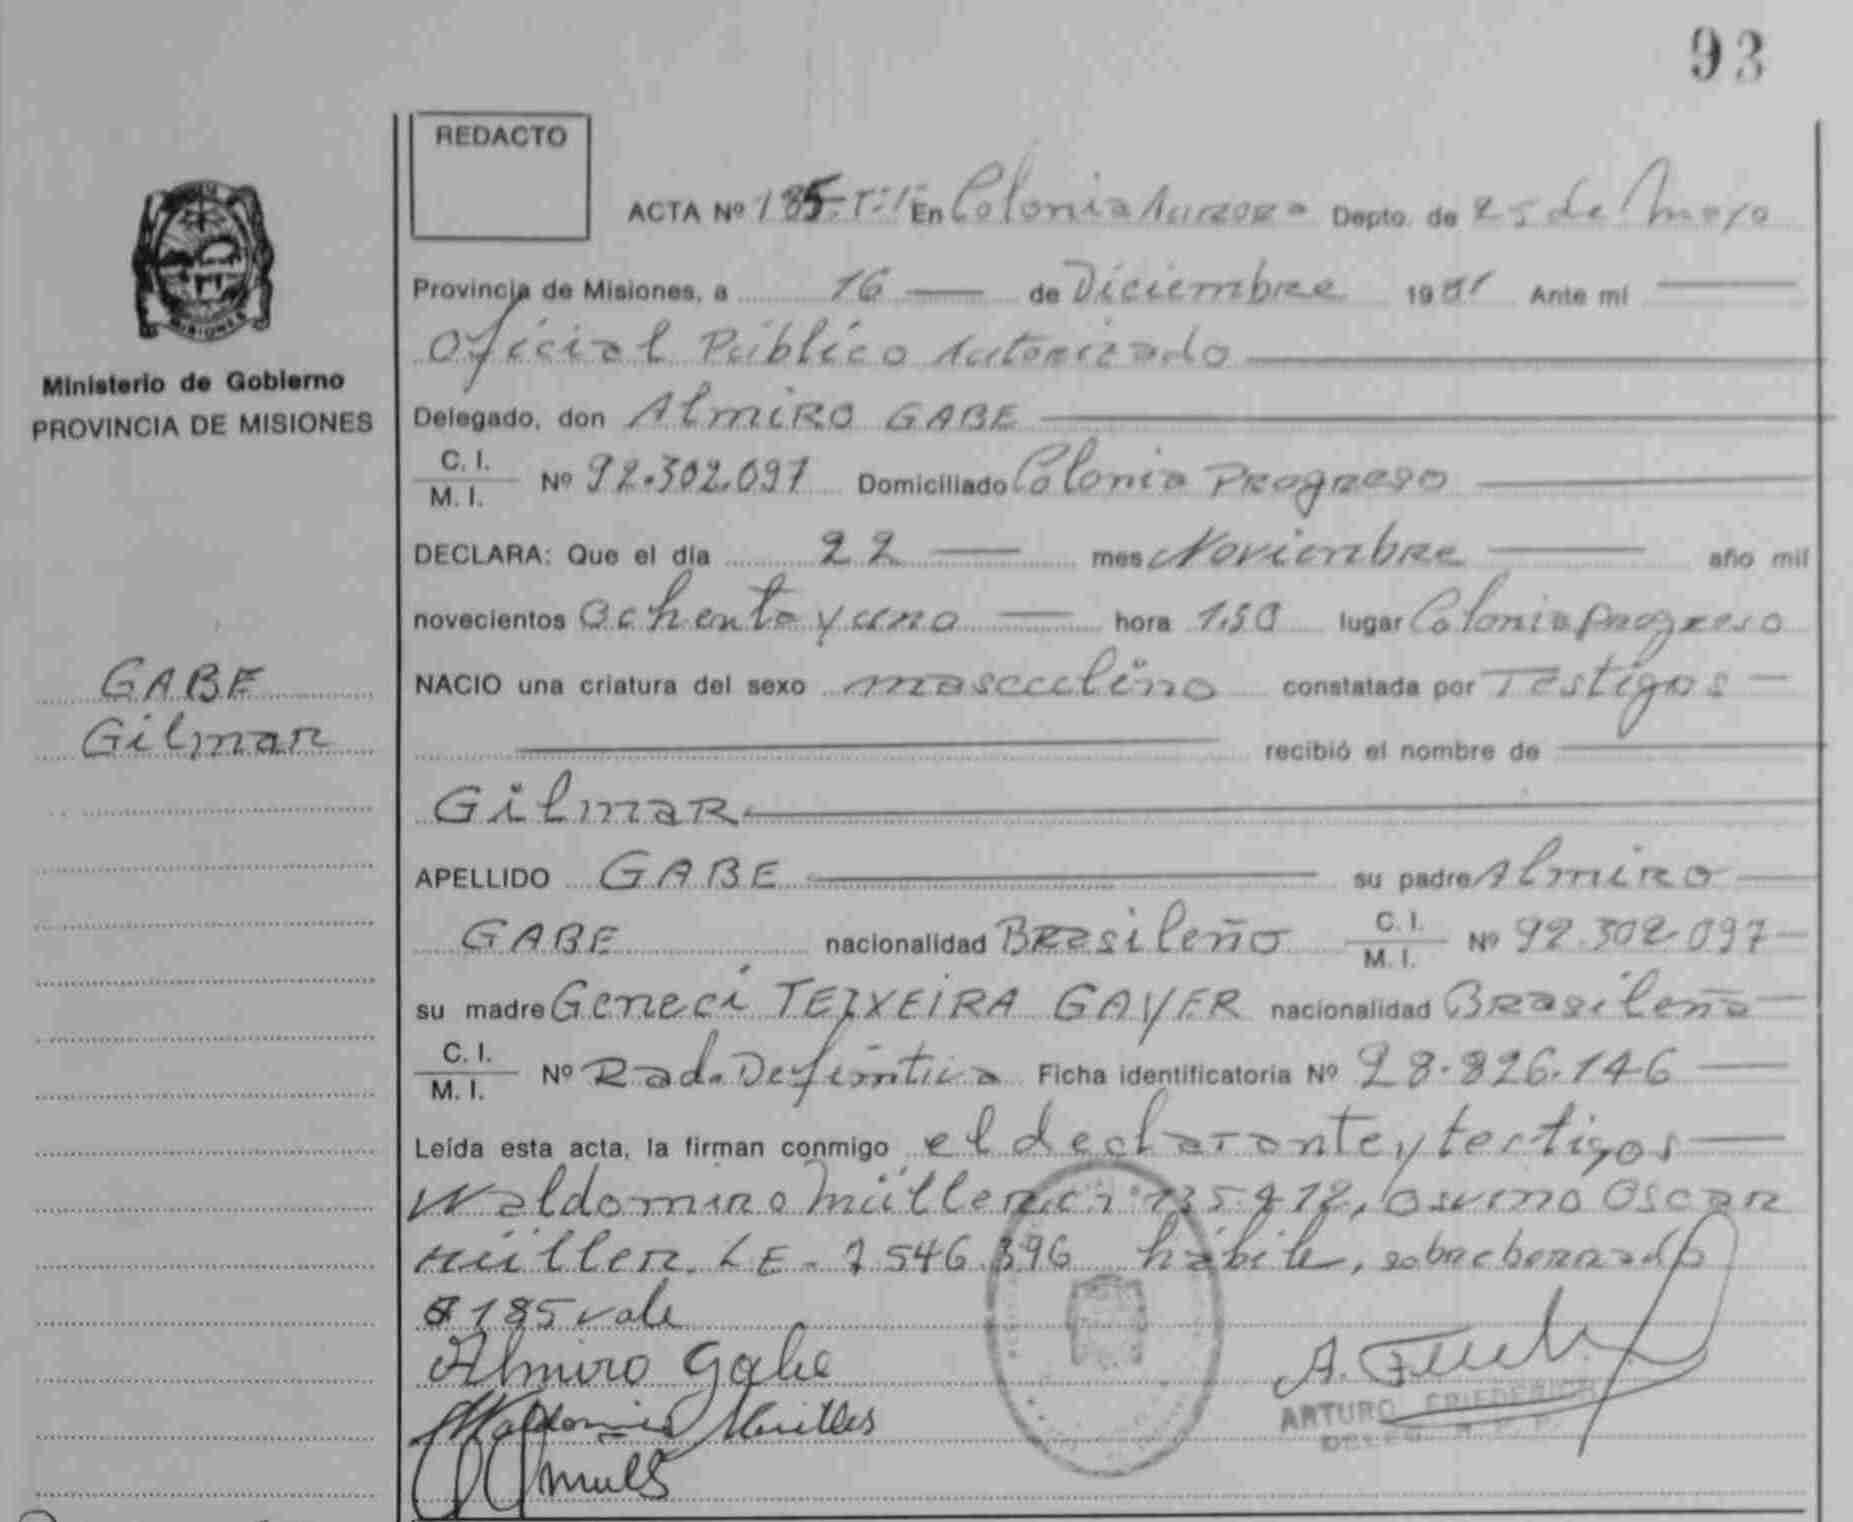 93
REDACTO
ACTA Nº 185-T:I En Colonia Aurora Depto. de 25 de Mayo
Provincia de Misiones, a 16 de Diciembre 1981 Ante mi
Oficial Público Autorizado
MISIONES
Ministerio de Gobierno
PROVINCIA DE MISIONES
Delegado, don Almiro GABE
C. I.
M. I. Nº 92.302.097 Domiciliado Colonia Progreso
DECLARA: Que el día 22 mes Noviembre año mil
novecientos Ochenta y uno hora 1.30 lugar Colonia Progreso
GABE
Gilmar
NACIO una criatura del sexo masculino constatada por Testigos
recibió el nombre de
Gilmar
APELLIDO GABE su padre Almiro
GABE nacionalidad Brasileño C. I. M. I. Nº 92.302.097
su madre Geneci TEIXEIRA GAYER nacionalidad Brasileña
C. I.
M. I. Nº Rad. Definitiva Ficha identificatoria Nº 28.826.146
Leída esta acta, la firman conmigo el declarante y testigos
Waldomiro Müller ci 135.412, Osvino Oscar
Müller. LE- 7546.396 hábile, sobreborrado
185 vale
Almiro Gabe
Waldomiro Muller
A.
ARTURO FRIEDERICH